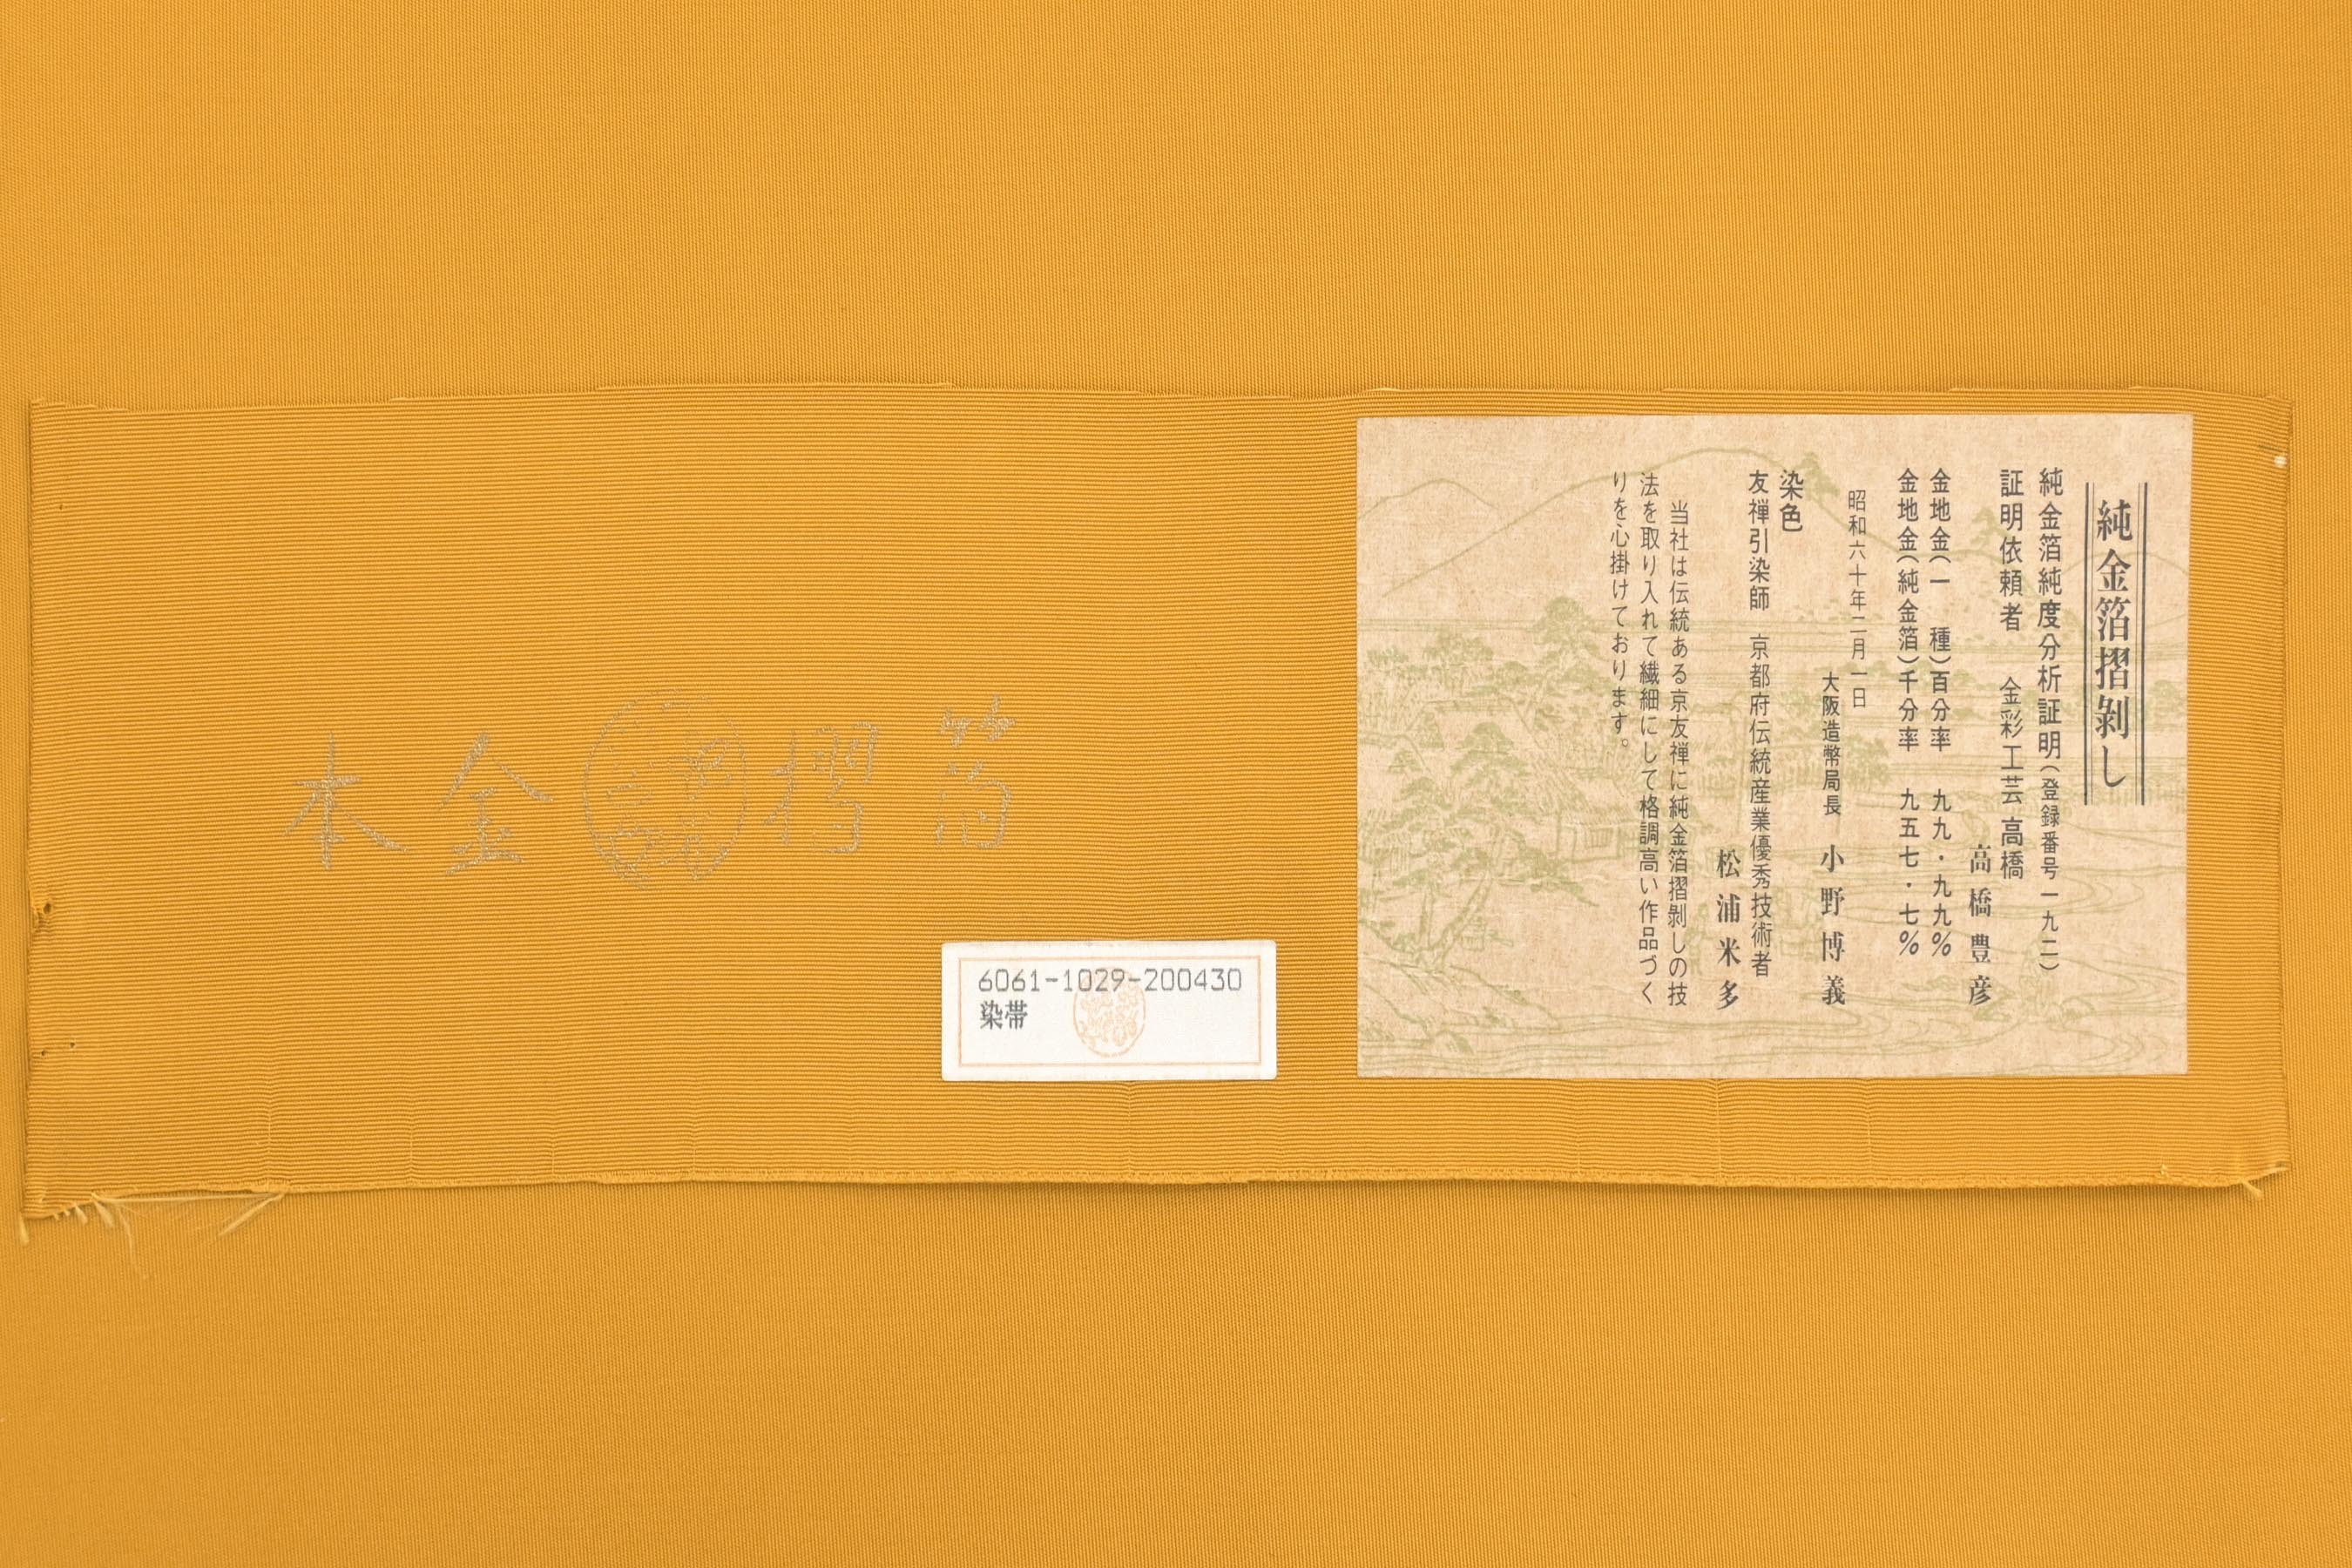 純金箔摺剝し
純金箔純度分析証明(登録番号一九二)
証明依頼者　金彩工芸 高橋
高橋豊彦
金地金(一　種)百分率　九九・九九%
金地金(純金箔)千分率　九五七・七%
昭和六十年二月一日
大阪造幣局長　小野博義
染色
友禅引染師　京都府伝統産業優秀技術者
松浦米多
当社は伝統ある京友禅に純金箔摺剝しの技
法を取り入れて繊細にして格調高い作品づく
りを心掛けております。
本金摺箔
6061-1029-200430
染帯